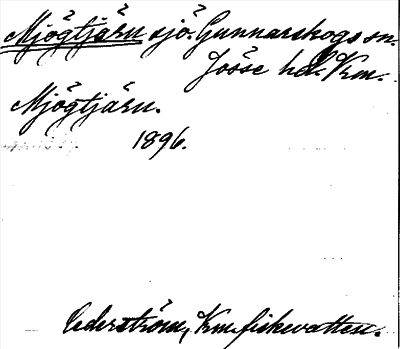 Mjögtjärn sjö. Gunnarskogs sn.
Jösse hd. Krm.
Mjögtjärn.
1896.
Cederström, Krm. fiskevatten.